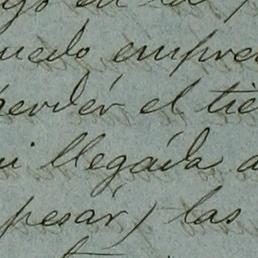 en la
uedo empre
perder el tie
i llegada a
pesar) las